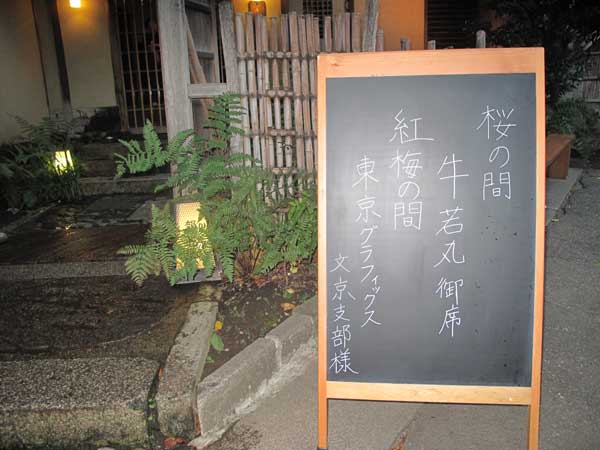 桜の間
牛若丸御席
紅梅の間
東京グラフィックス
文京支部様